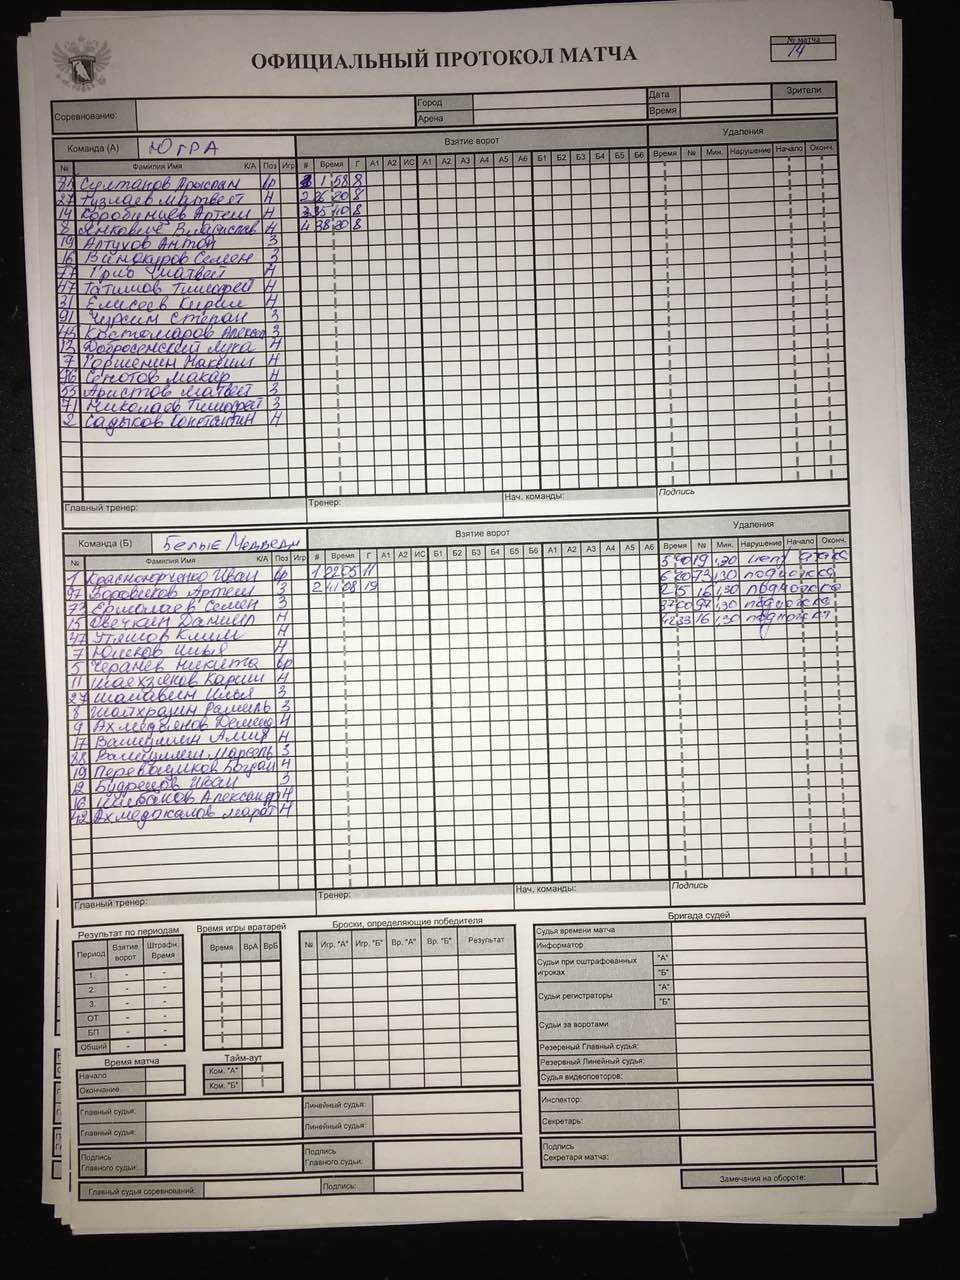 ОФИЦИАЛЬНЫЙ ПРОТОКОЛ МАТЧА
№ матча
14
Соревнование:
Город
Арена
Дата
Время
Зрители
Команда (А) ЮГРА
Взятие ворот
Удаления
№ Фамилия Имя К/А Поз Игр # Время Г А1 А2 ИС А1 А2 А3 А4 А5 А6 Б1 Б2 Б3 Б4 Б5 Б6 Время № Мин. Нарушение Начало Оконч.
Султанов Арыслан вр 1 58 8
27 Матвей Н 2 26 20 8
14 Коробинцев Артем Н 3 35 10 8
8 Янкович Владислав Н 4 38 20 8
19 Алтухов Антон З
16 Винокуров Семен З
77 Матвей Н
47 Татимов Тимофей Н
31 Елисеев Кирил Н
91 Степан З
45 Костомаров Алексан З
13 Добросенский Лука Н
7 Горшенин Максим Н
96 Макар Н
53 Аристов Матвей З
71 Николаев Тимофей З
2 Садыков Константин Н
Главный тренер: Тренер: Нач. команды: Подпись
Команда (Б) Белые Медведи
Взятие ворот
Удаления
№ Фамилия Имя К/А Поз Игр # Время Г А1 А2 ИС Б1 Б2 Б3 Б4 Б5 Б6 А1 А2 А3 А4 А5 А6 Время № Мин. Нарушение Начало Оконч.
1 Иван вр 1 22 05 11 5 40 19 1,30
97 Боровиков Артем З 2 41 08 19 6 20 73 1,30 подножка
73 Ермолаев Семен З 16 1,30 подножка
15 Овечкин Даниил Н 37 00 97 1,30 подножка
47 Утяшов Клим Н 42 33 16 1,30 подножка
7 Юнсков Илья Н
5 Черанев Никита вр
11 Шаяхзянов Карим Н
27 Шамавин Илья З
8 Шайхразин Рамиль З
9 Ахмедзянов Демид Н
17 Валиуллин Амир Н
88 Валиуллин Марсель З
19 Перевощиков Богдан Н
12 Будрецов Иван З
16 Александр Н
42 Марат Н
Главный тренер: Тренер: Нач. команды: Подпись
Результат по периодам
Период Взятие ворот Штрафн. Время
1. - -
2. - -
3. - -
ОТ - -
БП - -
Общий - -
Время игры вратарей
Время ВрА ВрБ
Броски, определяющие победителя
№ Игр. "А" Игр. "Б" Вр. "А" Вр. "Б" Результат
Бригада судей
Судья времени матча
Информатор
Судьи при оштрафованных игроках "А"
"Б"
Судьи регистраторы "А"
"Б"
Судьи за воротами
Резервный Главный судья:
Резервный Линейный судья:
Судья видеоповторов:
Время матча
Начало
Окончание
Тайм-аут
Ком. "А"
Ком. "Б"
Главный судья: Линейный судья:
Главный судья: Линейный судья:
Инспектор:
Секретарь:
Подпись Главного судьи: Подпись Главного судьи:
Подпись Секретаря матча:
Главный судья соревнований: Подпись:
Замечания на обороте: